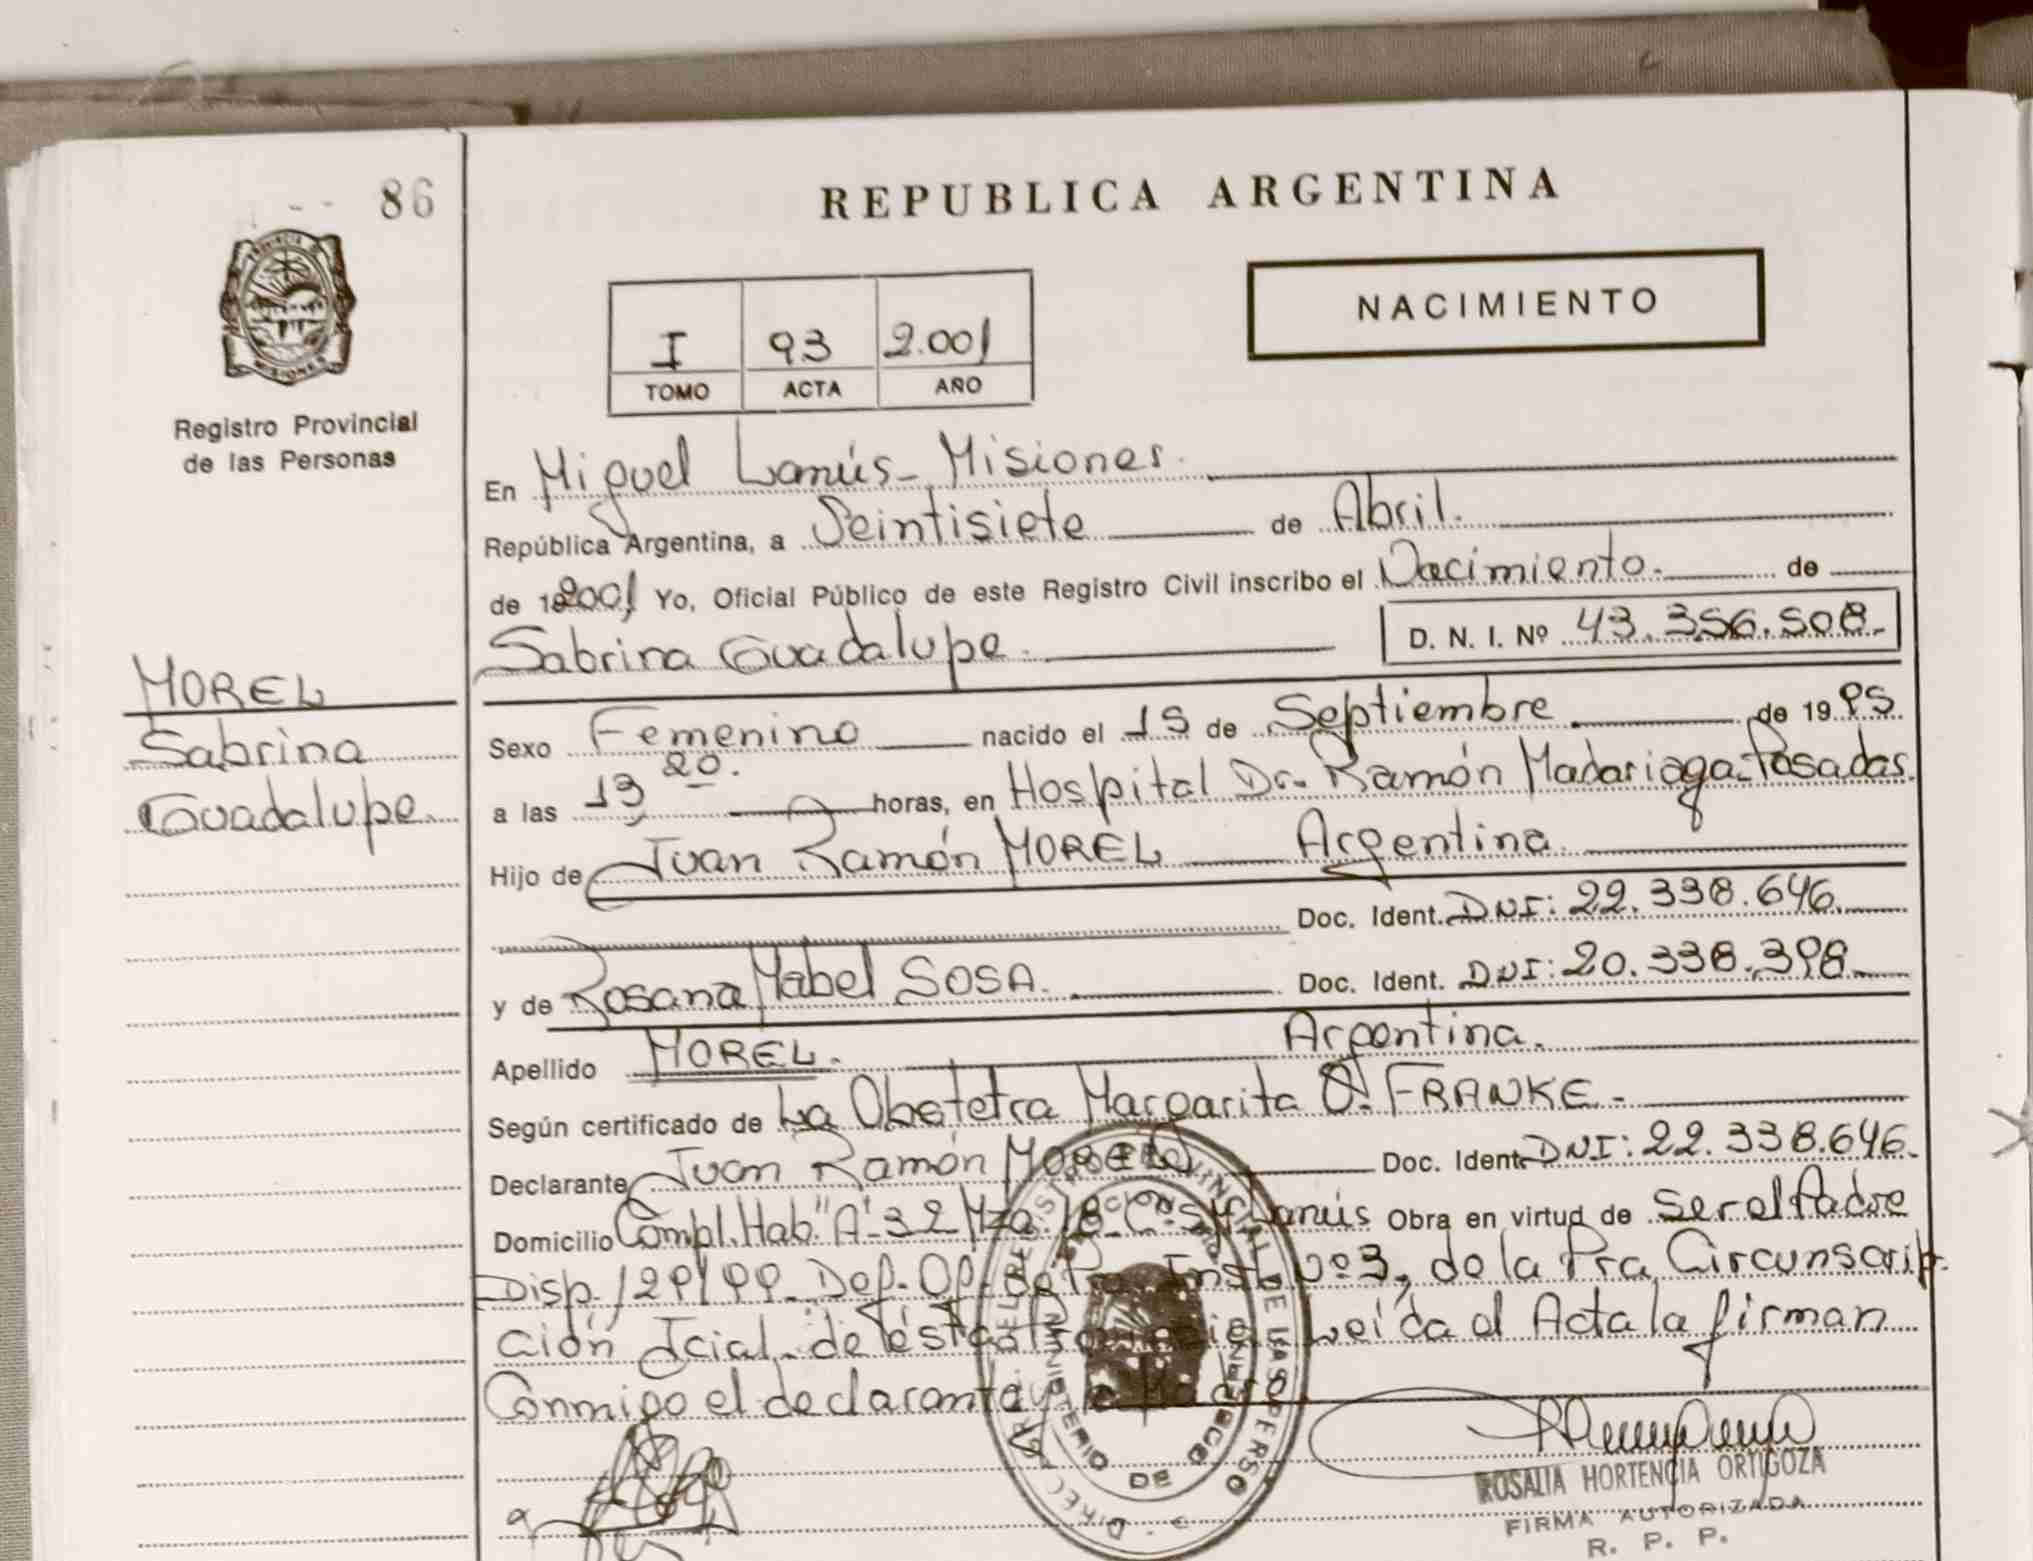 86
REPUBLICA ARGENTINA
NACIMIENTO
I 93 2.001
TOMO ACTA AÑO
PROVINCIA DE MISIONES
Registro Provincial
de las Personas
En Miguel Lanús - Misiones.
República Argentina, a Veintisiete de Abril.
de 2001 Yo, Oficial Público de este Registro Civil inscribo el Nacimiento. de
Sabrina Guadalupe. D. N. I. Nº 43.356.508.-
MOREL
Sabrina
Guadalupe.
Sexo Femenino nacido el 15 de Septiembre de 19 95
a las 13 20. horas, en Hospital Dr. Ramón Madariaga - Posadas.
Hijo de Juan Ramón MOREL Argentina.
Doc. Ident. DNI: 22.338.646.
y de Rosana Mabel SOSA. Doc. Ident. DNI: 20.338.398.
Argentina.
Apellido MOREL.
Según certificado de La Obstetra Margarita O. FRANKE.-
Declarante Juan Ramón MOREL Doc. Ident. DNI: 22.338.646.
Domicilio Compl. Hab. "A" 32 Mza. Lanús Obra en virtud de ser el Padre
Disp. 129/99 - Def. Of. de Inst. Nº 3, de la Pra Circunscrip-
ción Jcial. de ésta Leída el Acta la firman
Conmigo el declarante y la
ROSALIA HORTENCIA ORTIGOZA
FIRMA AUTORIZADA
R. P. P.